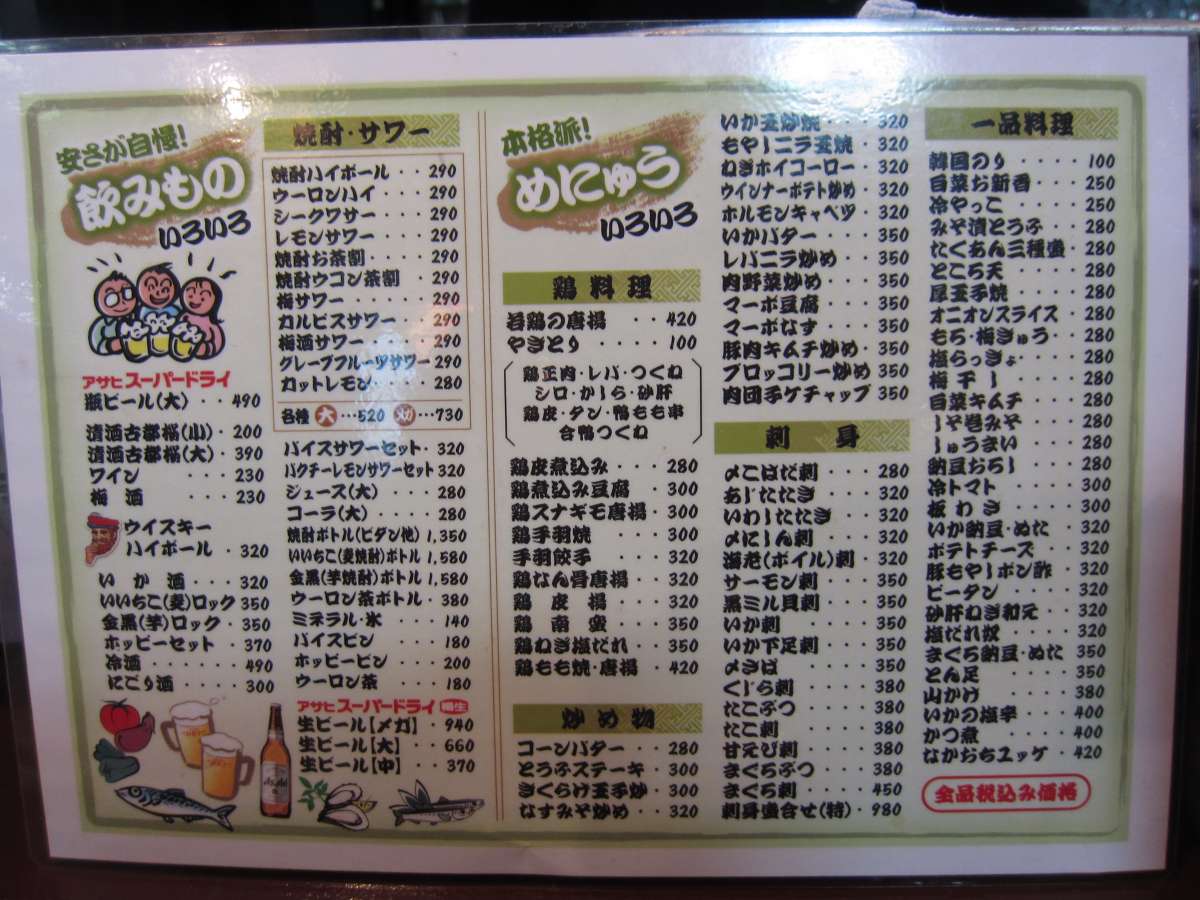 安さが自慢!
飲みもの
いろいろ
アサヒスーパードライ
瓶ビール(大)・・490
清酒古都桜(小)・200
清酒古都桜(大)・390
ワイン・・・230
梅酒・・・230
ウイスキー
ハイボール・320
いか酒・・・320
いいちこ(麦)ロック 350
金黒(芋)ロック・350
ホッピーセット・370
冷酒・・・・・・490
にごり酒・・・300
焼酎・サワー
焼酎ハイボール・・290
ウーロンハイ・・・290
シークワサー・・・290
レモンサワー・・・290
焼酎お茶割・・・290
焼酎ウコン茶割・290
梅サワー・・・・290
カルピスサワー・・290
梅酒サワー・・・290
グレープフルーツサワー・290
カットレモン・・・280
各種 大…520 メガ…730
バイスサワーセット・320
パクチーレモンサワーセット 320
ジュース(大)・・・・280
コーラ(大)・・・・280
焼酎ボトル(ビダン他) 1,350
いいちこ(麦焼酎)ボトル 1,580
金黒(芋焼酎)ボトル 1,580
ウーロン茶ボトル・380
ミネラル・氷・・・140
バイスビン・・・180
ホッピービン・・・200
ウーロン茶・・・180
アサヒスーパードライ 樽生
生ビール【メガ】・940
生ビール【大】・・660
生ビール【中】・・370
本格派!
めにゅう
いろいろ
鶏料理
若鶏の唐揚・・420
やきとり・・・・100
鶏正肉・レバ・つくね
シロ・かしら・砂肝
鶏皮・タン・鴨もも串
合鴨つくね
鶏皮煮込み・・・280
鶏煮込み豆腐・・300
鶏スナギモ唐揚・300
鶏手羽焼・・・300
手羽餃子・・・320
鶏なん骨唐揚・・320
鶏皮揚・・・320
鶏南蛮・・・350
鶏ねぎ塩だれ・・350
鶏もも焼・唐揚・420
炒め物
コーンバター・・280
とうふステーキ・300
きくらげ玉子炒・300
なすみそ炒め・・320
いか玉炒焼・・・320
もやしニラ玉焼・320
ねぎホイコーロー・320
ウインナーポテト炒め・320
ホルモンキャベツ・320
いかバター・・・350
レバニラ炒め・・350
肉野菜炒め・・・350
マーボ豆腐・・・350
マーボなす・・・350
豚肉キムチ炒め・350
ブロッコリー炒め 350
肉団子ケチャップ 350
刺身
〆こはだ刺・・・280
あじたたき・・・320
いわしたたき・・320
〆にしん刺・・・320
海老(ボイル)刺・320
サーモン刺・・・350
黒ミル貝刺・・・350
いか刺・・・・350
いか下足刺・・・350
〆さば・・・・350
くじら刺・・・・380
たこぶつ・・・・380
たこ刺・・・・380
甘えび刺・・・380
まぐろぶつ・・・380
まぐろ刺・・・・450
刺身盛合せ(特)・980
一品料理
韓国のり・・・・100
白菜お新香・・・250
冷やっこ・・・・250
みそ漬とうふ・・280
たくあん三種盛・280
ところ天・・・・280
厚玉子焼・・・・280
オニオンスライス・280
もろ・梅きゅう・・280
塩らっきょ・・・280
梅干し・・・・280
白菜キムチ・・・280
しそ巻みそ・・・280
しゅうまい・・・280
納豆おろし・・・280
冷トマト・・・・300
板わさ・・・・300
いか納豆・ぬた・320
ポテトチーズ・・320
豚もやしポン酢・320
ピータン・・・・320
砂肝ねぎ和え・・320
塩だれ奴・・・・320
まぐろ納豆・ぬた 350
とん足・・・・350
山かけ・・・・380
いかの塩辛・・・400
かつ煮・・・・400
なかおちユッケ・420
全品税込み価格